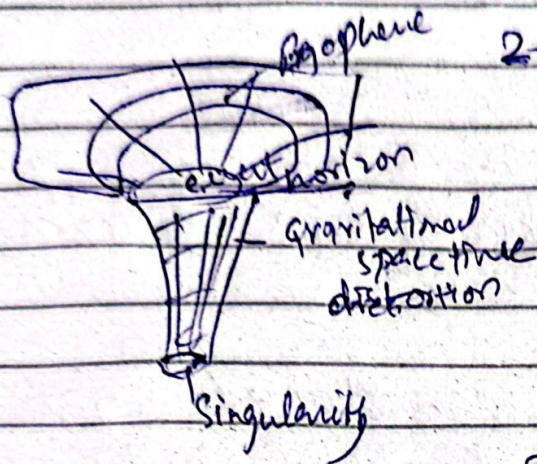 2-
event horizon
gravitational
spacetime
distortion
Singularity